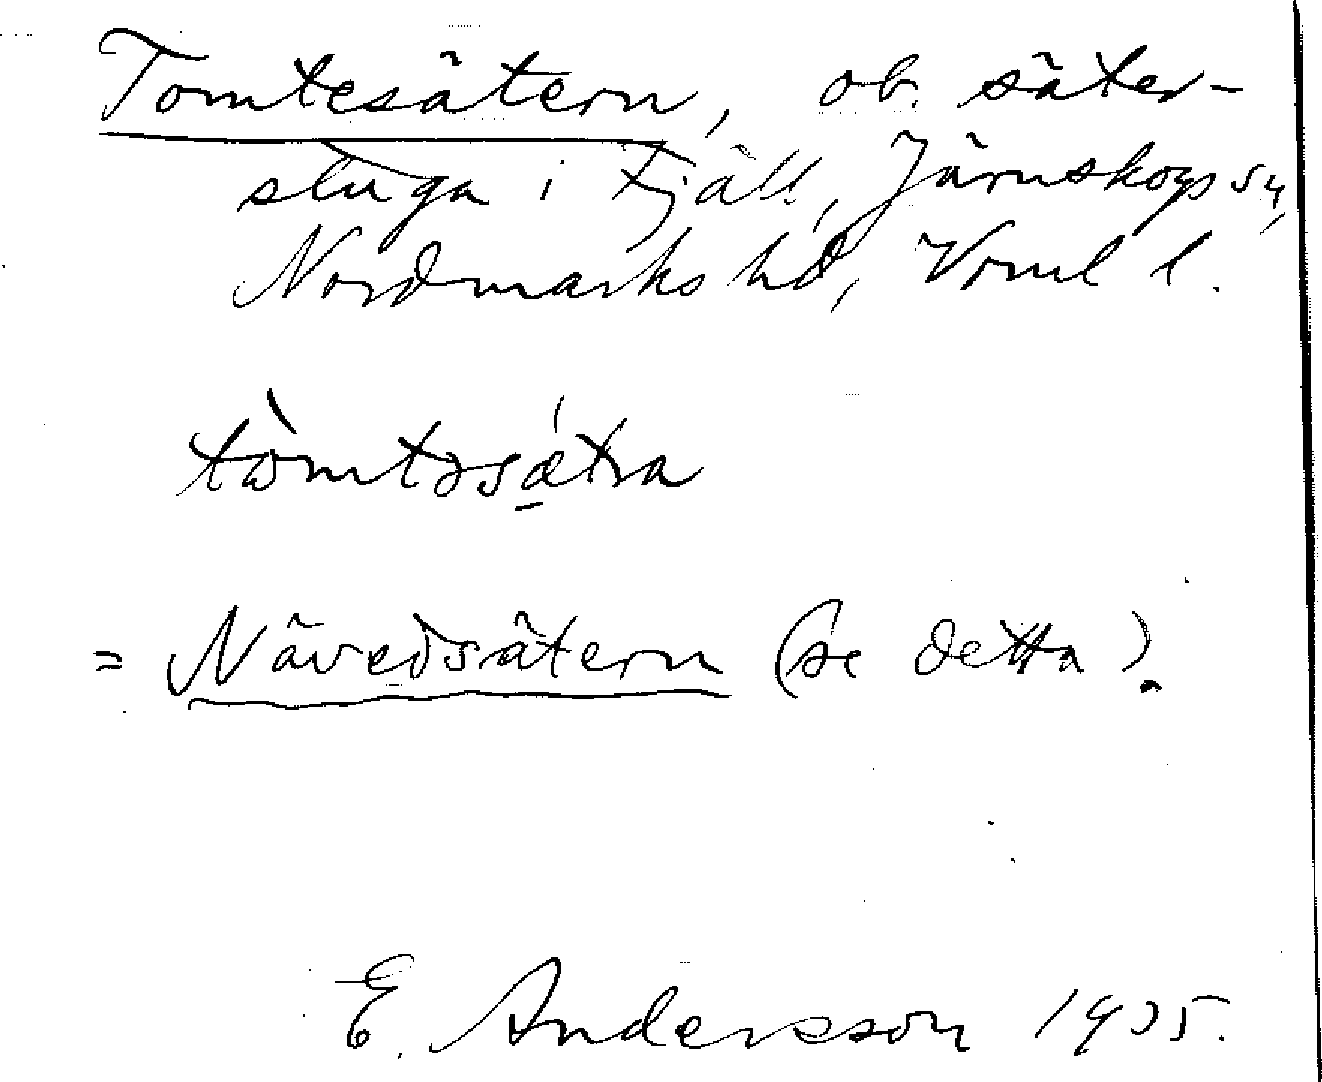 Tomtesätern, ob. säter-
stuga i Fjäll, Järnskogs sn,
Nordmarks hd, Vrml l.
tòmtəsǽtra
= Nävedsätern (se detta).
E. Andersson 1935.